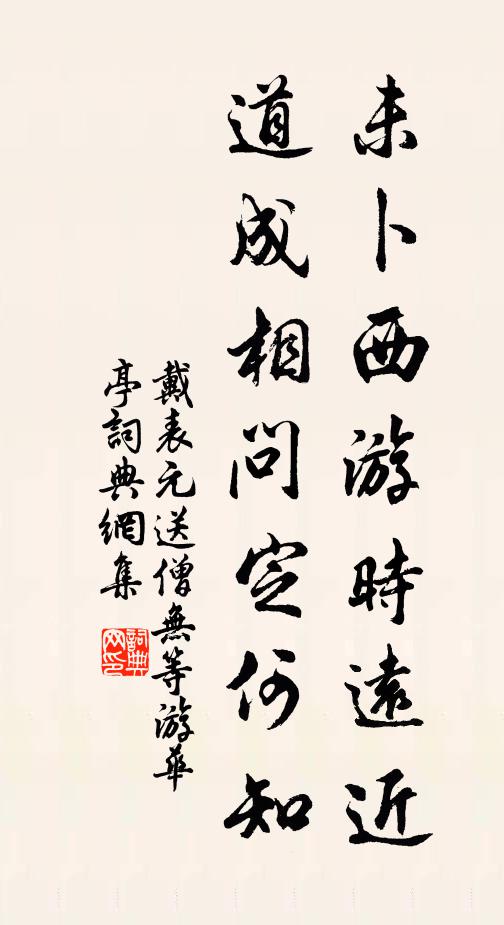 未卜西游時遠近
道成相問定何知
戴表元送僧無等游華
亭詞典網集
詞典網印